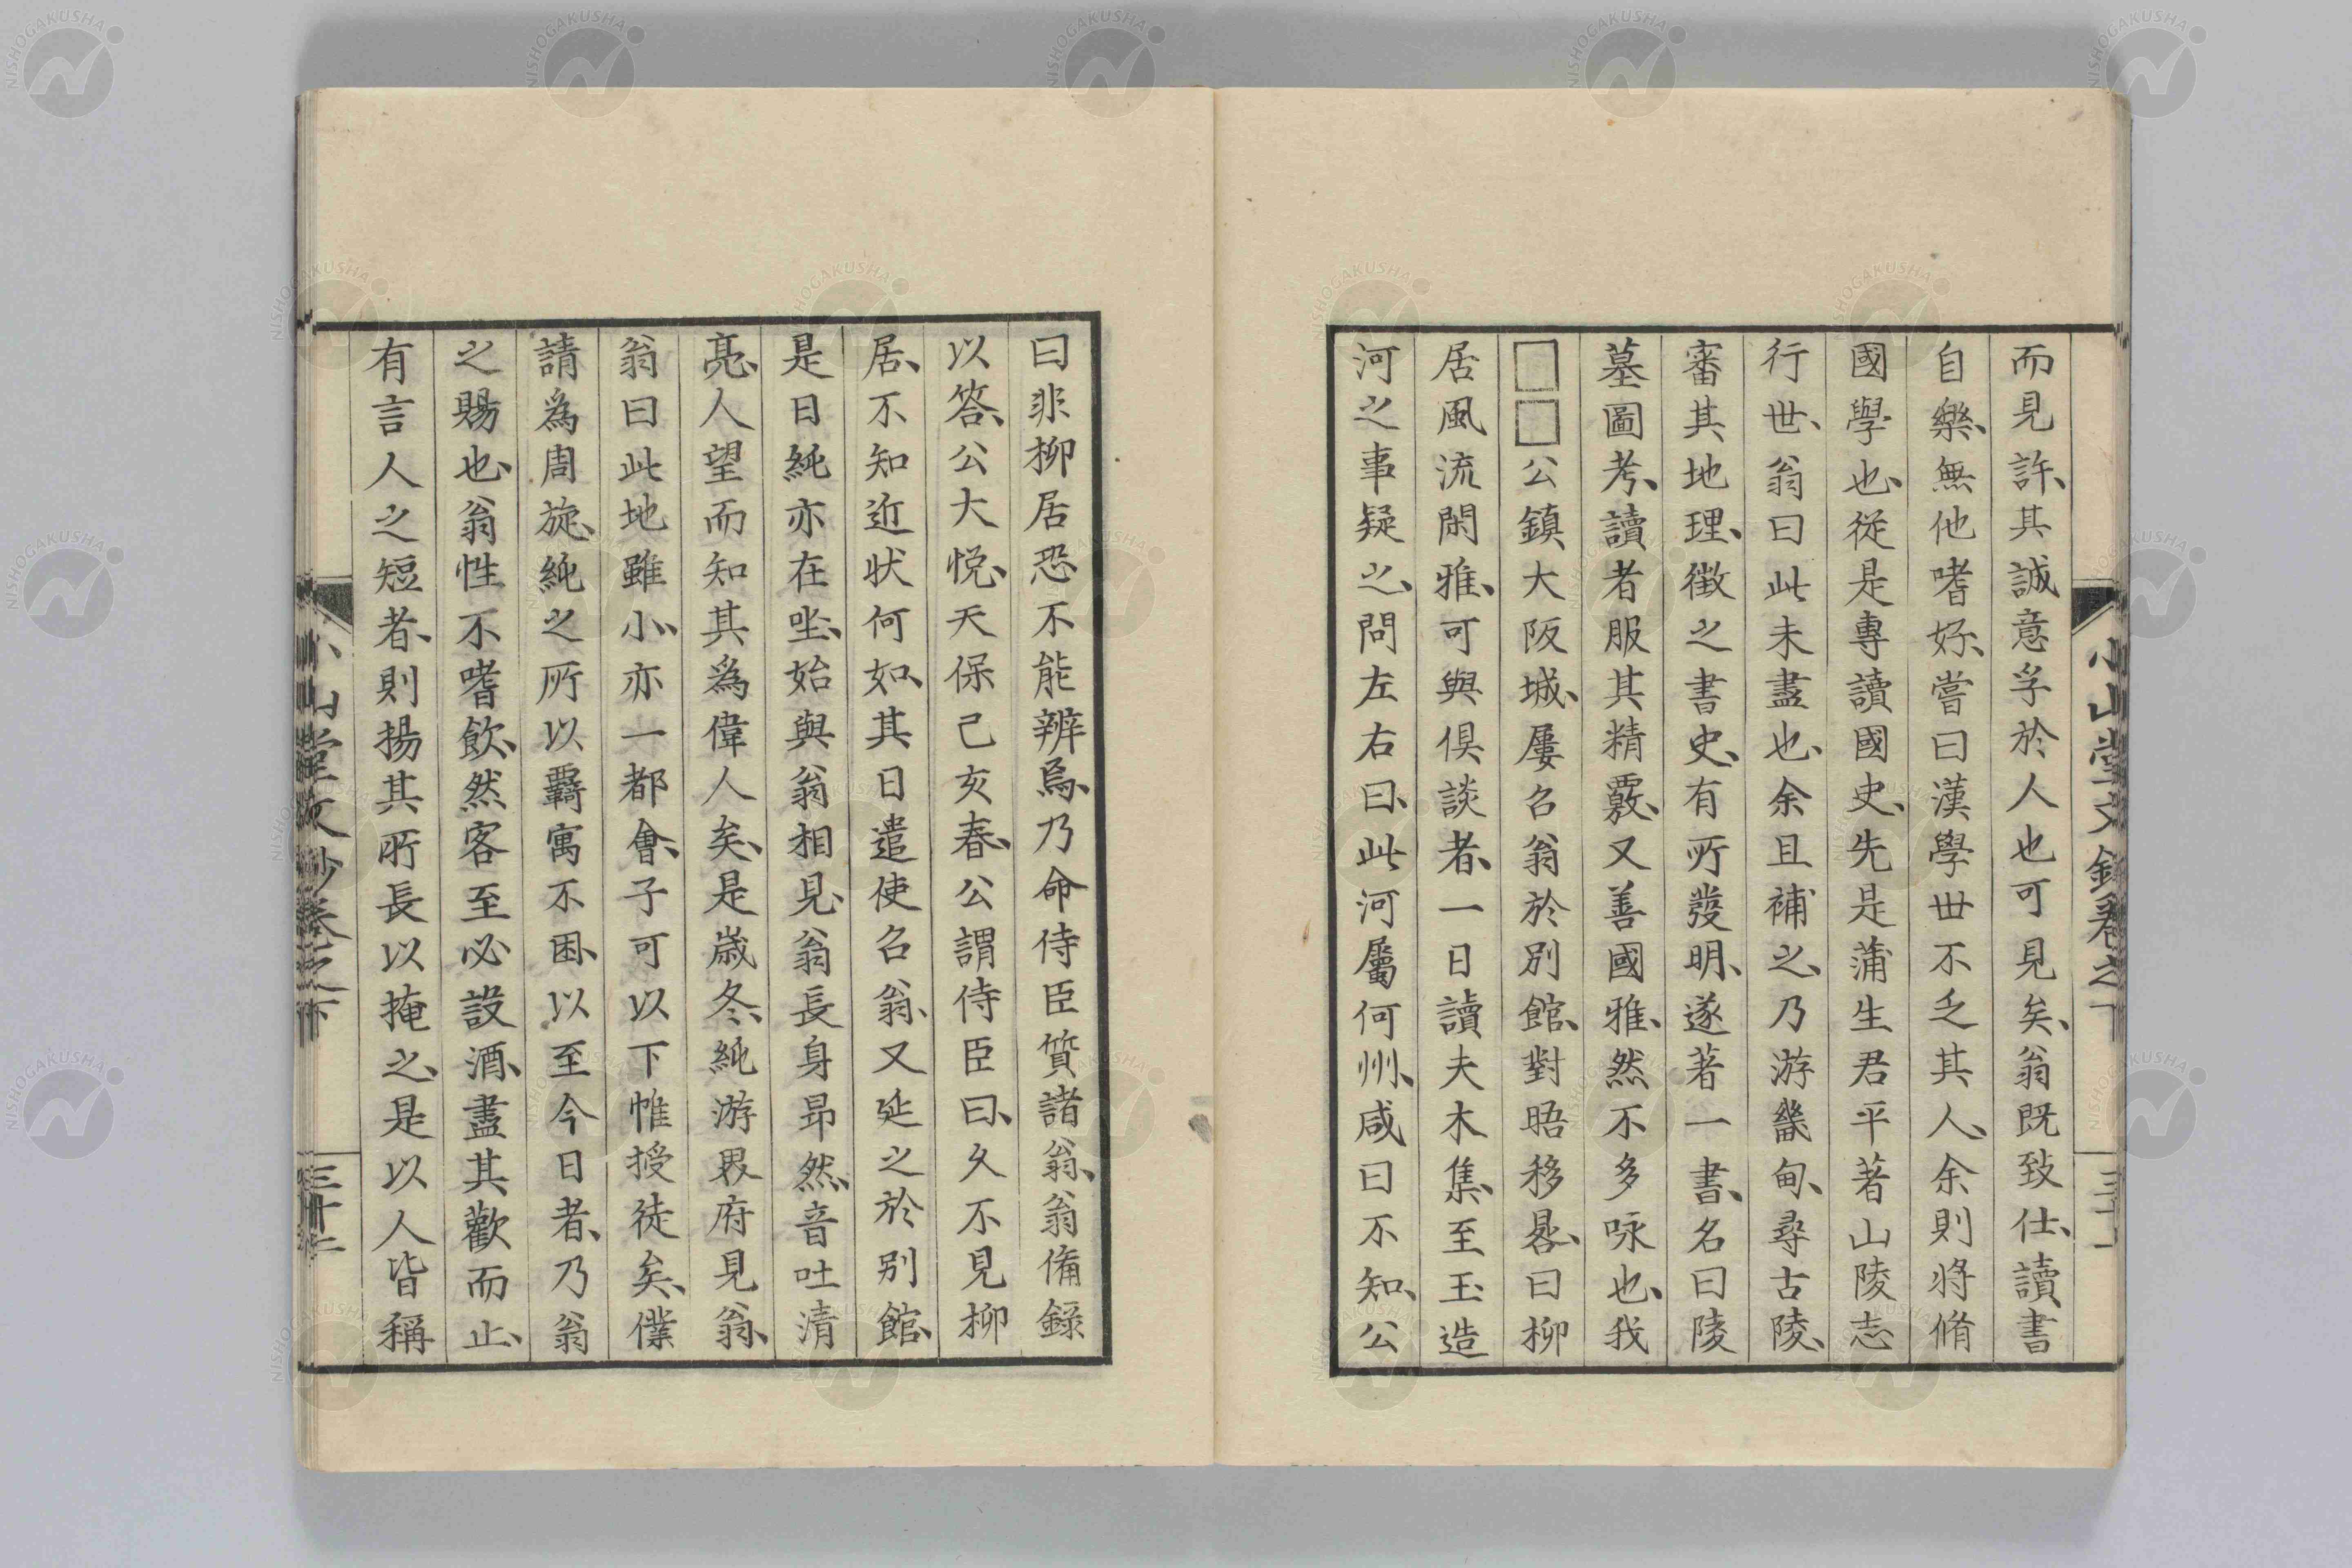 小山堂文鈔卷之下
三十一
而見許、其誠意孚於人也可見矣、翁既致仕、讀書
自樂、無他嗜好、嘗曰漢學世不乏其人、余則將脩
國學也、從是專讀國史、先是蒲生君平著山陵志
行世、翁曰此未盡也、余且補之、乃游畿甸、尋古陵、
審其地理、徵之書史、有所發明、遂著一書、名曰陵
墓圖考、讀者服其精覈、又善國雅、然不多咏也、我
□□公鎮大阪城、屢召翁於別館、對晤移晷、曰柳
居風流閑雅、可與俱談者、一日讀夫木集、至玉造
河之事疑之、問左右曰、此河屬何州、咸曰不知、公
曰非柳居恐不能辨焉、乃命侍臣質諸翁、翁備錄
以答、公大悅、天保己亥春、公謂侍臣曰、久不見柳
居、不知近狀何如、其日遣使召翁、又延之於別館、
是日純亦在坐、始與翁相見、翁長身昂然、音吐清
亮、人望而知其爲偉人矣、是歲冬、純游界府見翁、
翁曰此地雖小、亦一都會、子可以下帷授徒矣、僕
請爲周旋、純之所以羇寓不困、以至今日者、乃翁
之賜也、翁性不嗜飲、然客至必設酒、盡其歡而止、
有言人之短者、則揚其所長以掩之、是以人皆稱
小山堂文鈔卷之下
三十二
NISHOGAKUSHA